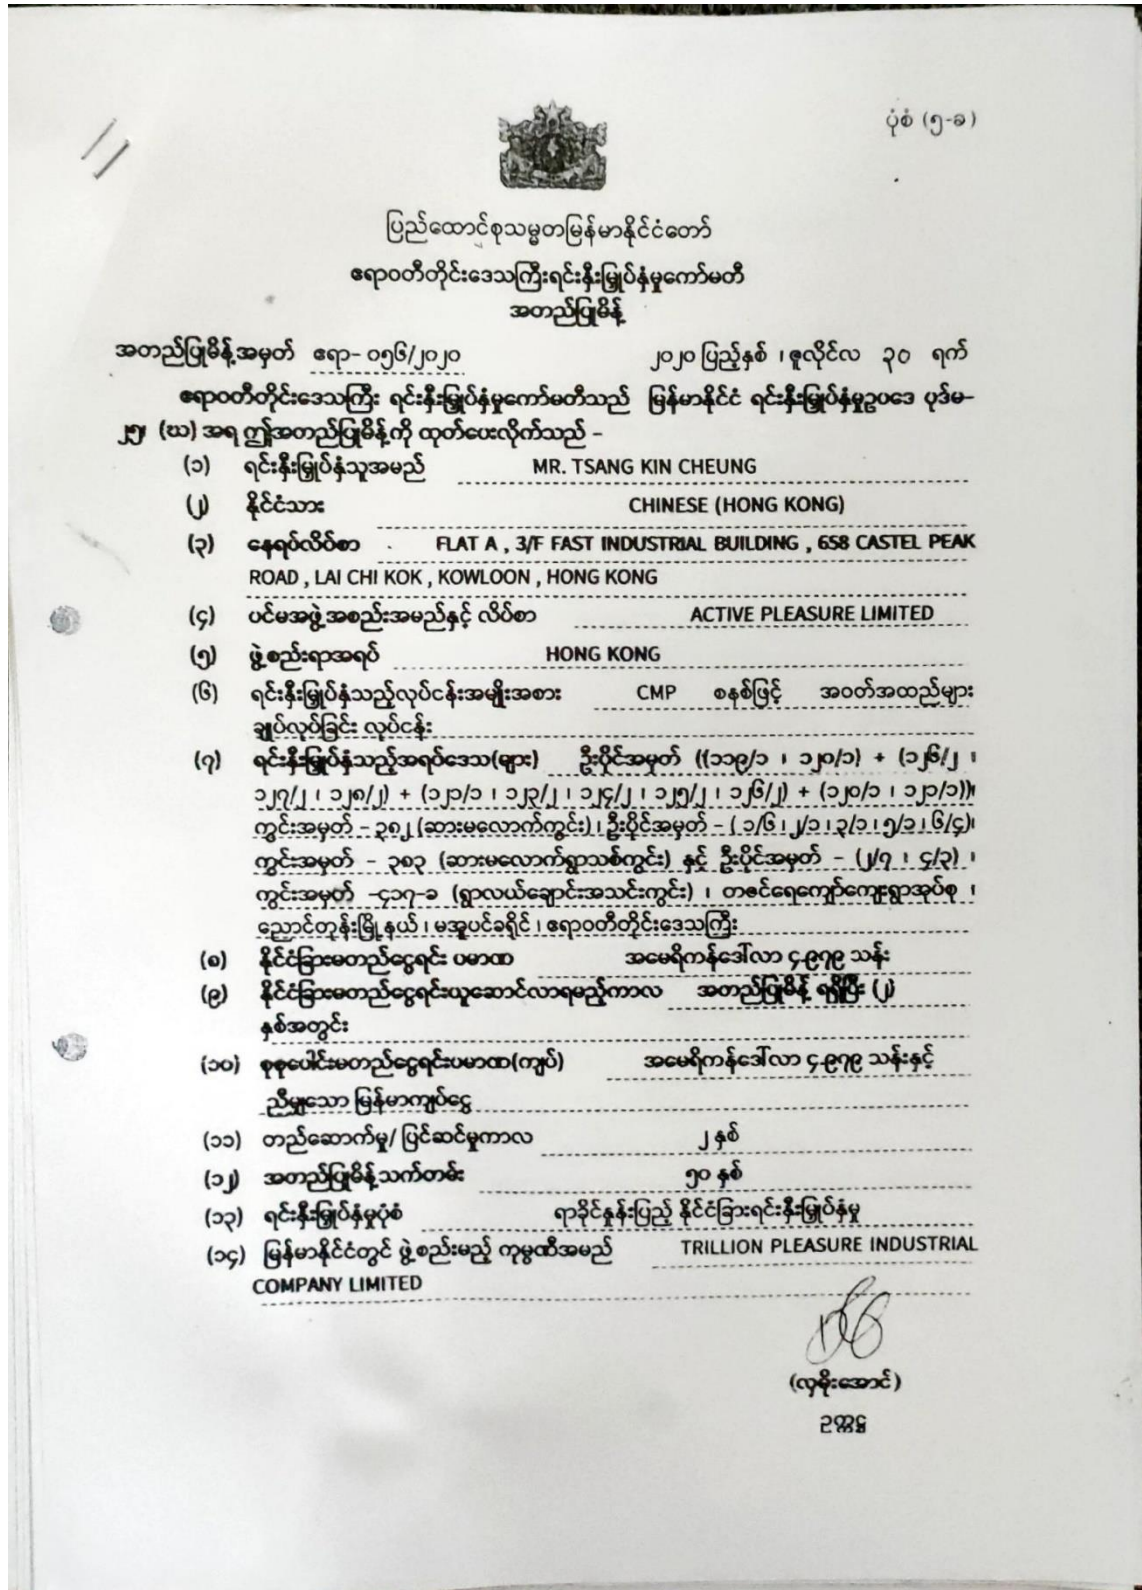 ပုံစံ (၅-ခ)
ပြည်ထောင်စုသမ္မတမြန်မာနိုင်ငံတော်
ဧရာဝတီတိုင်းဒေသကြီးရင်းနှီးမြှုပ်နှံမှုကော်မတီ
အတည်ပြုမိန့်
အတည်ပြုမိန့်အမှတ် ဧရာ- ၀၅၆/၂၀၂၀ ၂၀၂၀ ပြည့်နှစ် ၊ ဇူလိုင်လ ၃၀ ရက်
ဧရာဝတီတိုင်းဒေသကြီး ရင်းနှီးမြှုပ်နှံမှုကော်မတီသည် မြန်မာနိုင်ငံ ရင်းနှီးမြှုပ်နှံမှုဥပဒေ ပုဒ်မ-
၂၅၊ (ဃ) အရ ဤအတည်ပြုမိန့်ကို ထုတ်ပေးလိုက်သည် -
(၁) ရင်းနှီးမြှုပ်နှံသူအမည် MR. TSANG KIN CHEUNG
(၂) နိုင်ငံသား CHINESE (HONG KONG)
(၃) နေရပ်လိပ်စာ . FLAT A , 3/F FAST INDUSTRIAL BUILDING , 658 CASTEL PEAK
ROAD , LAI CHI KOK , KOWLOON , HONG KONG
(၄) ပင်မအဖွဲ့အစည်းအမည်နှင့် လိပ်စာ ACTIVE PLEASURE LIMITED
(၅) ဖွဲ့စည်းရာအရပ် HONG KONG
(၆) ရင်းနှီးမြှုပ်နှံသည့်လုပ်ငန်းအမျိုးအစား CMP စနစ်ဖြင့် အဝတ်အထည်များ
ချုပ်လုပ်ခြင်း လုပ်ငန်း
(၇) ရင်းနှီးမြှုပ်နှံသည့်အရပ်ဒေသ(များ) ဦးပိုင်အမှတ် ((၁၁၉/၁ ၊ ၁၂၀/၁) + (၁၂၆/၂ ၊
၁၂၇/၂ ၊ ၁၂၈/၂) + (၁၂၁/၁ ၊ ၁၂၃/၂ ၊ ၁၂၄/၂ ၊ ၁၂၅/၂ ၊ ၁၂၆/၂) + (၁၂၀/၁ ၊ ၁၂၁/၁))၊
ကွင်းအမှတ် - ၃၈၂ (ဆားမလောက်ကွင်း) ၊ ဦးပိုင်အမှတ် - ( ၁/၆ ၊ ၂/၁ ၊ ၃/၁ ၊ ၅/၁ ၊ ၆/၄)၊
ကွင်းအမှတ် - ၃၈၃ (ဆားမလောက်ရွာသစ်ကွင်း) နှင့် ဦးပိုင်အမှတ် - (၂/၇ ၊ ၄/၃) ၊
ကွင်းအမှတ် -၄၁၇-ခ (ရွာလယ်ချောင်းအသင်းကွင်း) ၊ တဇင်ရေကျော်ကျေးရွာအုပ်စု ၊
ညောင်တုန်းမြို့နယ် ၊ မအူပင်ခရိုင် ၊ ဧရာဝတီတိုင်းဒေသကြီး
(၈) နိုင်ငံခြားမတည်ငွေရင်း ပမာဏ အမေရိကန်ဒေါ်လာ ၄.၉၇၉ သန်း
(၉) နိုင်ငံခြားမတည်ငွေရင်းယူဆောင်လာရမည့်ကာလ အတည်ပြုမိန့် ရရှိပြီး (၂)
နှစ်အတွင်း
(၁၀) စုစုပေါင်းမတည်ငွေရင်းပမာဏ(ကျပ်) အမေရိကန်ဒေါ်လာ ၄.၉၇၉ သန်းနှင့်
ညီမျှသော မြန်မာကျပ်ငွေ
(၁၁) တည်ဆောက်မှု/ ပြင်ဆင်မှုကာလ ၂ နှစ်
(၁၂) အတည်ပြုမိန့်သက်တမ်း ၅၀ နှစ်
(၁၃) ရင်းနှီးမြှုပ်နှံမှုပုံစံ ရာခိုင်နှုန်းပြည့် နိုင်ငံခြားရင်းနှီးမြှုပ်နှံမှု
(၁၄) မြန်မာနိုင်ငံတွင် ဖွဲ့စည်းမည့် ကုမ္ပဏီအမည် TRILLION PLEASURE INDUSTRIAL
COMPANY LIMITED
(လှမိုးအောင်)
ဥက္ကဋ္ဌ